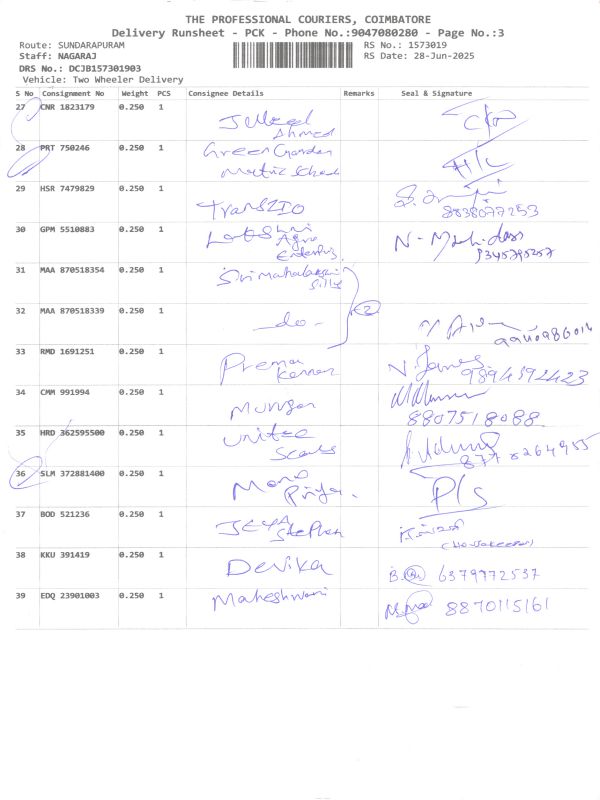 THE PROFESSIONAL COURIERS, COIMBATORE
Delivery Runsheet - PCK - Phone No.:9047080280 - Page No.:3
Route: SUNDARAPURAM
RS No.: 1573019
Staff: NAGARAJ
RS Date: 28-Jun-2025
DRS No.: DCJB157301903
Vehicle: Two Wheeler Delivery
S No Consignment No Weight PCS Consignee Details Remarks Seal & Signature
27 CNR 1823179 0.250 1
Ahmed
28 PRT 750246 0.250 1 Green Garden
29 HSR 7479829 0.250 1
8838077253
30 GPM 5510883 0.250 1
Agro
9345795257
31 MAA 870518354 0.250 1
32 MAA 870518339 0.250 1 -do-
33 RMD 1691251 0.250 1 Prema
9894392423
34 CMM 991994 0.250 1 Murugan
8807518088
35 HRD 362595500 0.250 1 United
36 SLM 372881400 0.250 1 Mano
Priya.
37 BOD 521236 0.250 1 Jeya
Stephen
38 KKU 391419 0.250 1 Devika 6379772537
39 EDQ 23901003 0.250 1 Maheshwari 8870115161